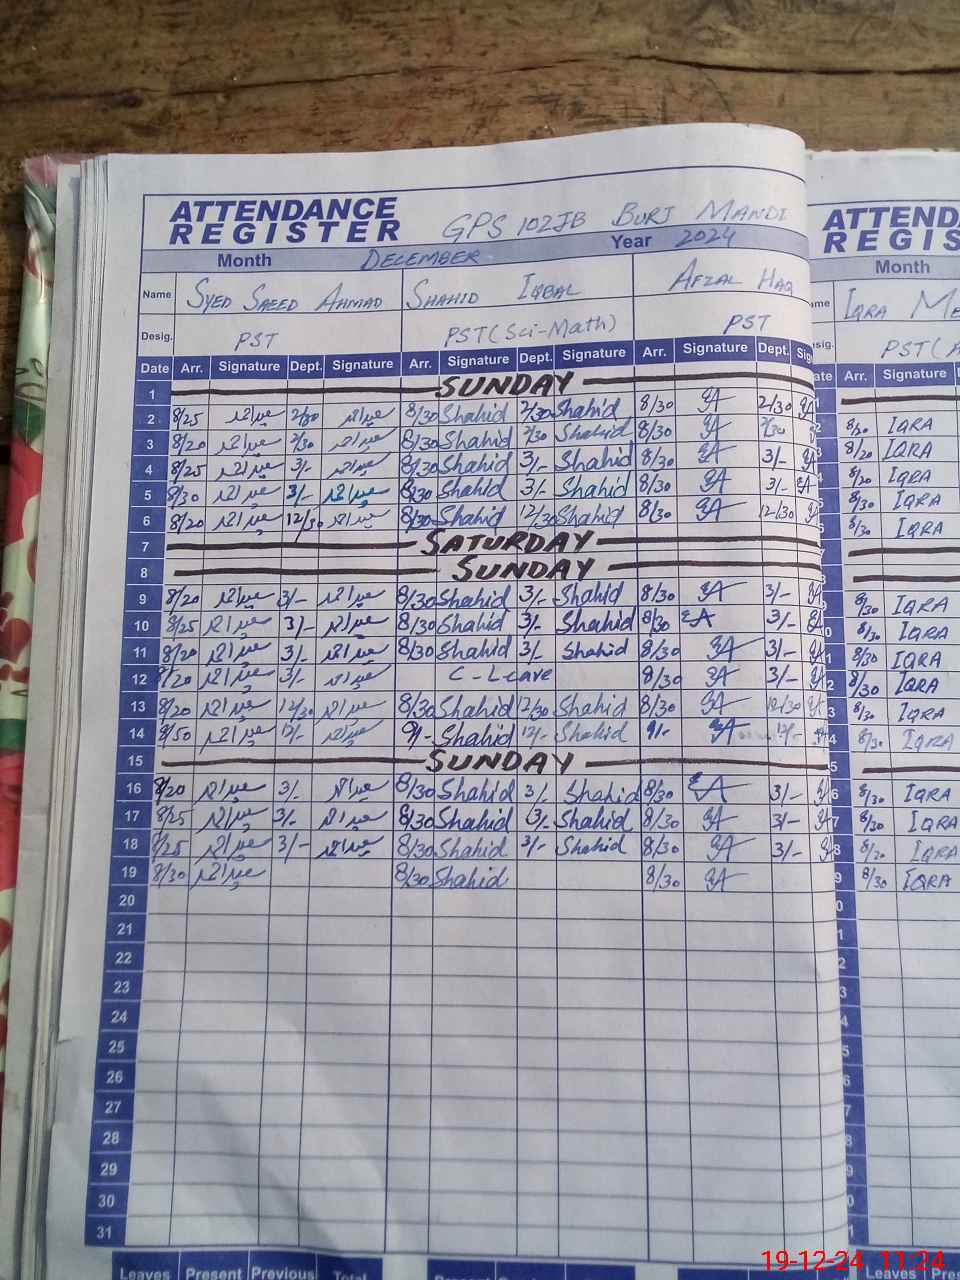 ATTENDANCE REGISTER GPS 102JB BURJ MANDI
Month DECEMBER Year 2024
Name SYED SAEED AHMAD SHAHID IQBAL AFZAL HAQ
Desig. PST PST (Sci-Math) PST
Date Arr. Signature Dept. Signature Arr. Signature Dept. Signature Arr. Signature Dept.
1 SUNDAY
2 8/25 سعید احمد 2/30 سعید احمد 8/30 Shahid 2/30 Shahid 8/30 2/30
3 8/20 سعید احمد 2/30 سعید احمد 8/30 Shahid 2/30 Shahid 8/30 2/30
4 8/25 سعید احمد 3/- سعید احمد 8/30 Shahid 3/- Shahid 8/30 3/-
5 8/30 سعید احمد 3/- سعید احمد 8/30 Shahid 3/- Shahid 8/30 3/-
6 8/20 سعید احمد 12/30 سعید احمد 8/30 Shahid 12/30 Shahid 8/30 12/30
7 SATURDAY
8 SUNDAY
9 8/20 سعید احمد 3/- سعید احمد 8/30 Shahid 3/- Shahid 8/30 3/-
10 8/25 سعید احمد 3/- سعید احمد 8/30 Shahid 3/- Shahid 8/30 3/-
11 8/20 سعید احمد 3/- سعید احمد 8/30 Shahid 3/- Shahid 8/30 3/-
12 8/20 سعید احمد 3/- سعید احمد C-Leave 8/30 3/-
13 8/20 سعید احمد 12/30 سعید احمد 8/30 Shahid 12/30 Shahid 8/30 12/30
14 8/50 سعید احمد 12/- سعید احمد 9/- Shahid 12/- Shahid 9/- 12/-
15 SUNDAY
16 8/20 سعید احمد 3/- سعید احمد 8/30 Shahid 3/- Shahid 8/30 3/-
17 8/25 سعید احمد 3/- سعید احمد 8/30 Shahid 3/- Shahid 8/30 3/-
18 8/25 سعید احمد 3/- سعید احمد 8/30 Shahid 3/- Shahid 8/30 3/-
19 8/30 سعید احمد 8/30 Shahid 8/30
20
21
22
23
24
25
26
27
28
29
30
31
Leaves Present Previous Total
Month
IQRA
PST
Arr. Signature
8/30 IQRA
8/20 IQRA
8/20 IQRA
8/30 IQRA
8/30 IQRA
8/30 IQRA
8/30 IQRA
8/30 IQRA
8/30 IQRA
8/30 IQRA
8/30 IQRA
8/30 IQRA
8/30 IQRA
8/20 IQRA
8/30 IQRA
Leaves Present
19-12-24 11:24